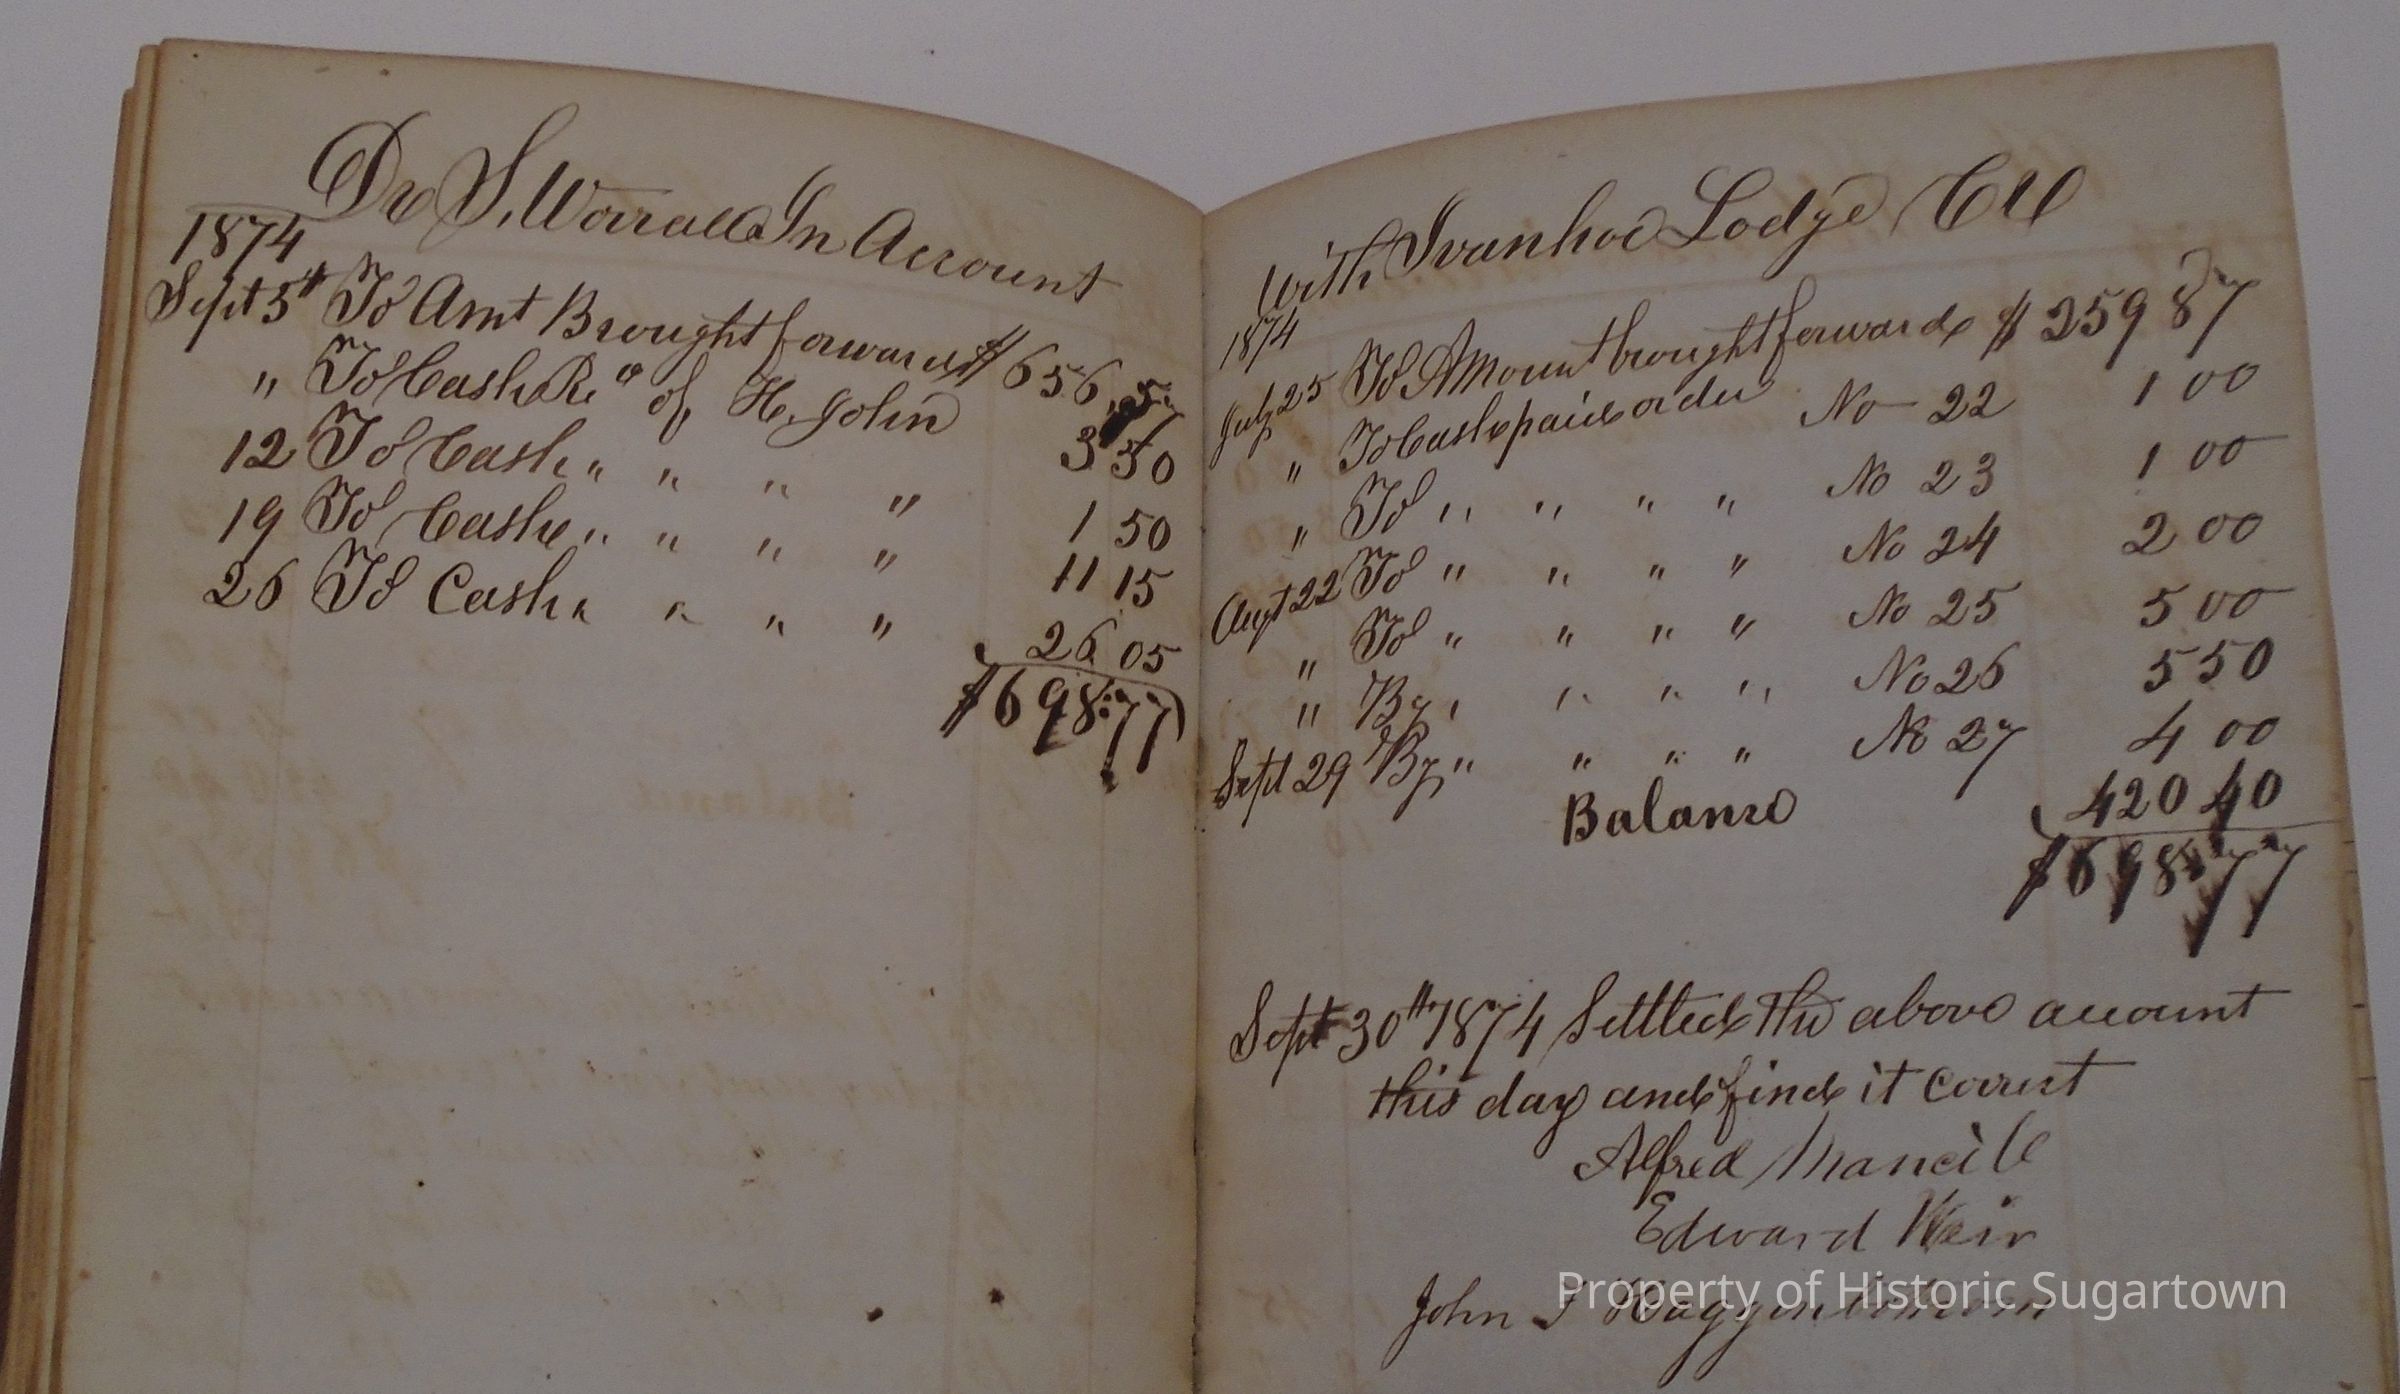 Dr S. Worrall In Account
1874
Sept 5th To Amt Brought forward $ 656.57
" To Cash Recd of H. John 3 50
12 To Cash " " " " 1 50
19 To Cash " " " " 11 15
26 To Cash " " " " 26 05
$698.77
With Ivanhoe Lodge Cr
1874
July 25 To Amount brought forward $ 259 87
" To Cash paid order No 22 1 00
" To " " " " No 23 1 00
Augt 22 To " " " " No 24 2 00
" To " " " " No 25 5 00
" By " " " " No 26 5 50
Sept 29 By " " " " No 27 4 00
Balance 420 40
$698.77
Sept 30th 1874 Settled the above account
this day and find it correct
Alfred Mancill
Edward Weir
John
Property of Historic Sugartown